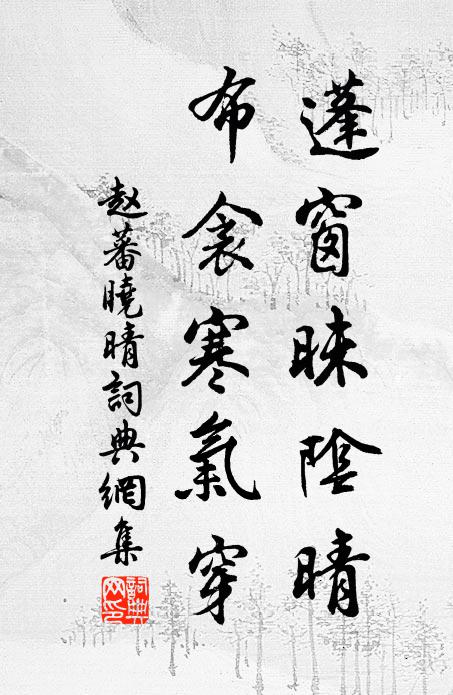 蓬窗昧陰晴
布衾寒氣穿
赵蕃曉晴詞典網集